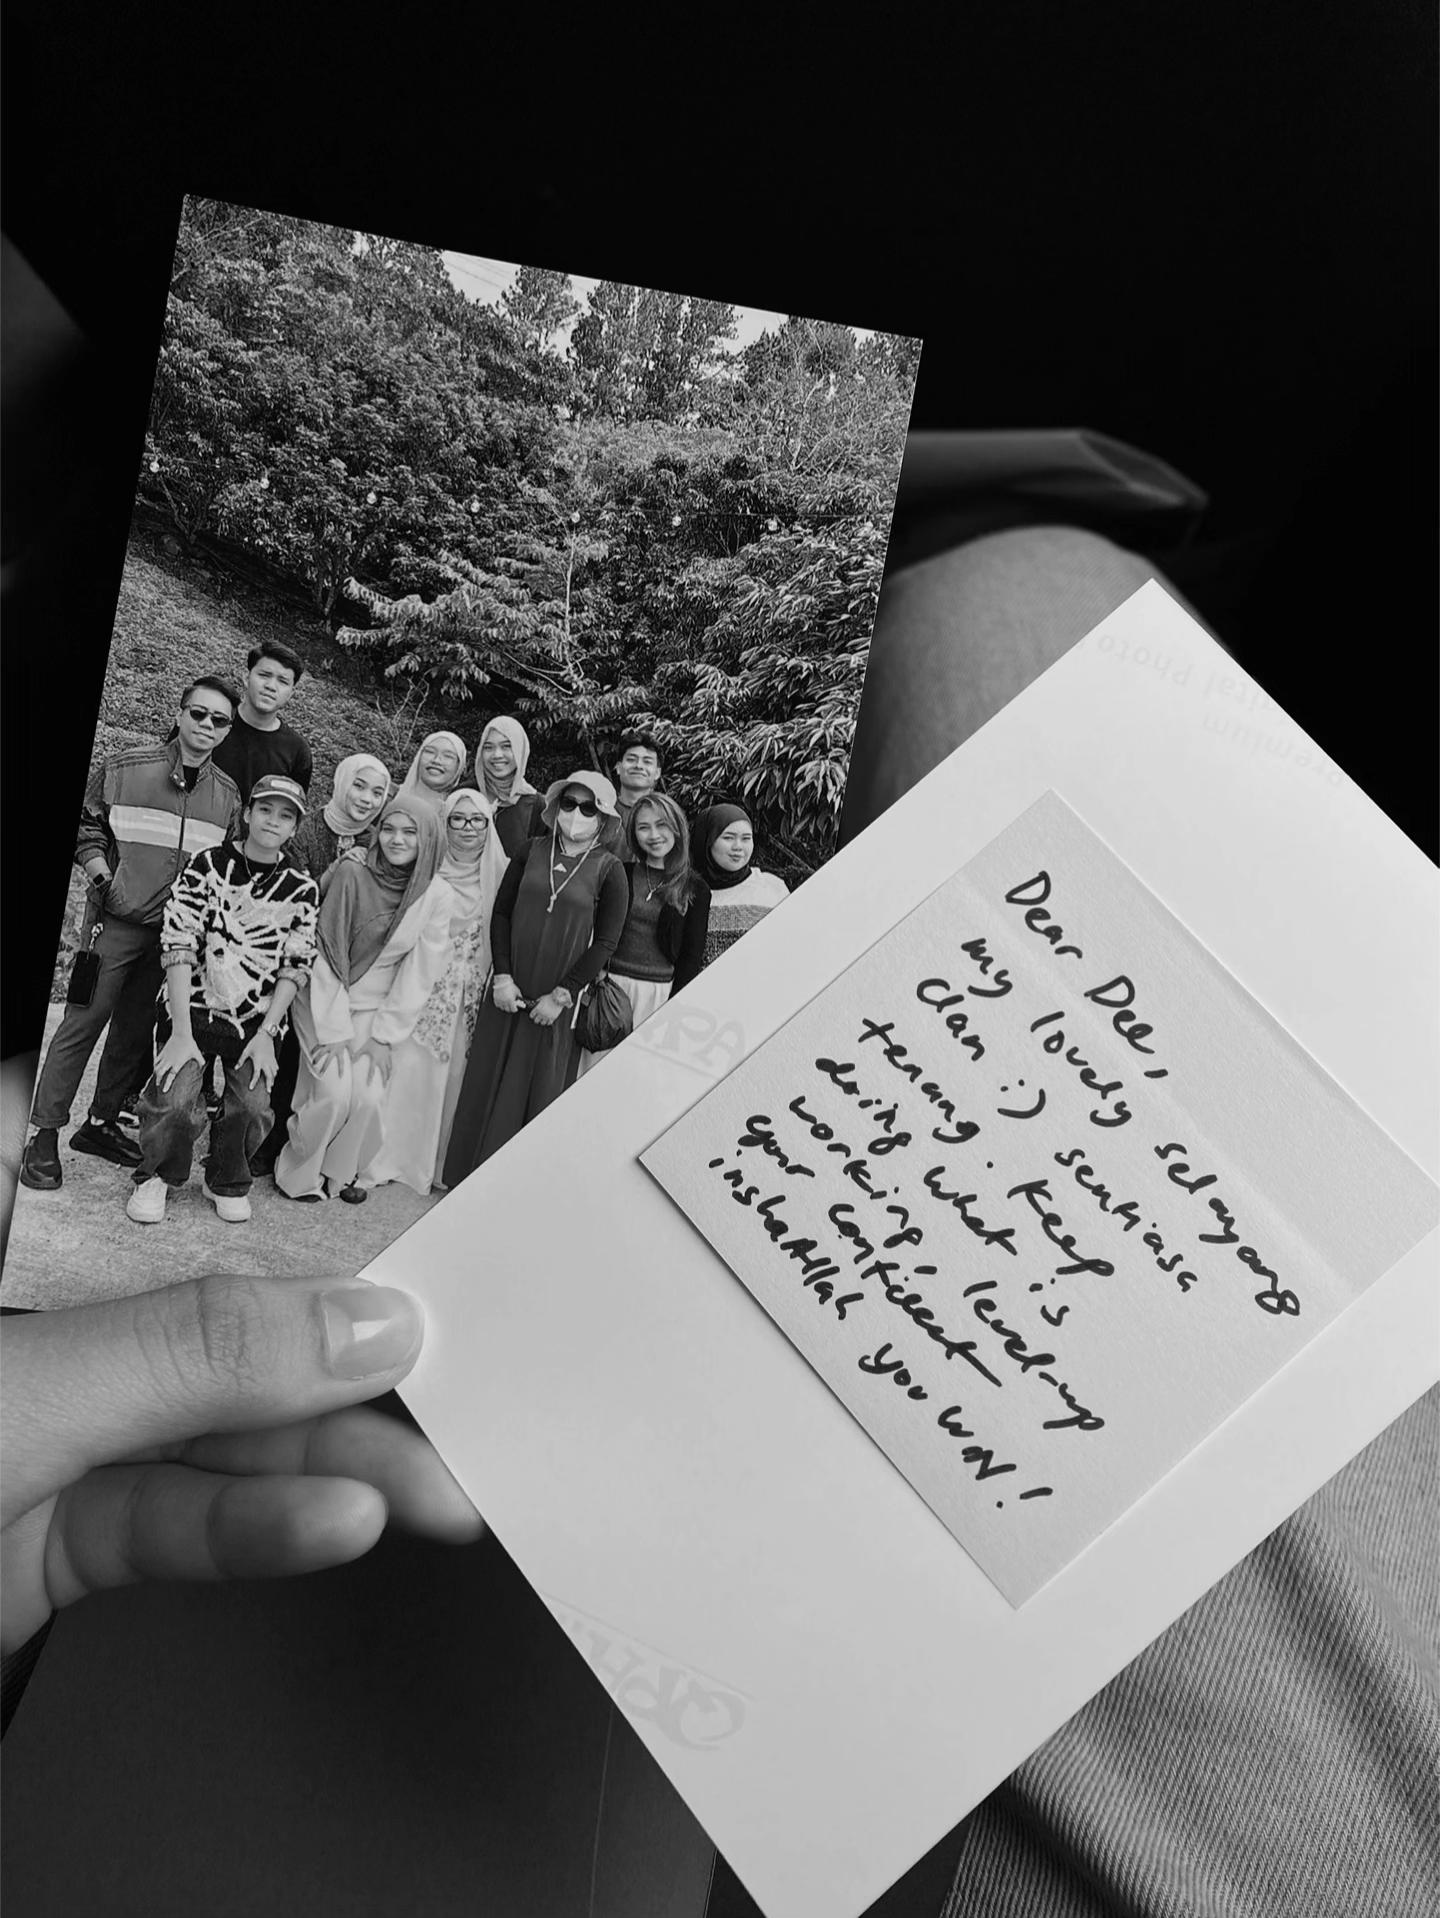 Dear Dee,
my lovely selayang
clan :) sentiasa
tenang. Keep
doing what is
working, level-up
your confident
inshaAllah you WIN!
premium
Digital Photo